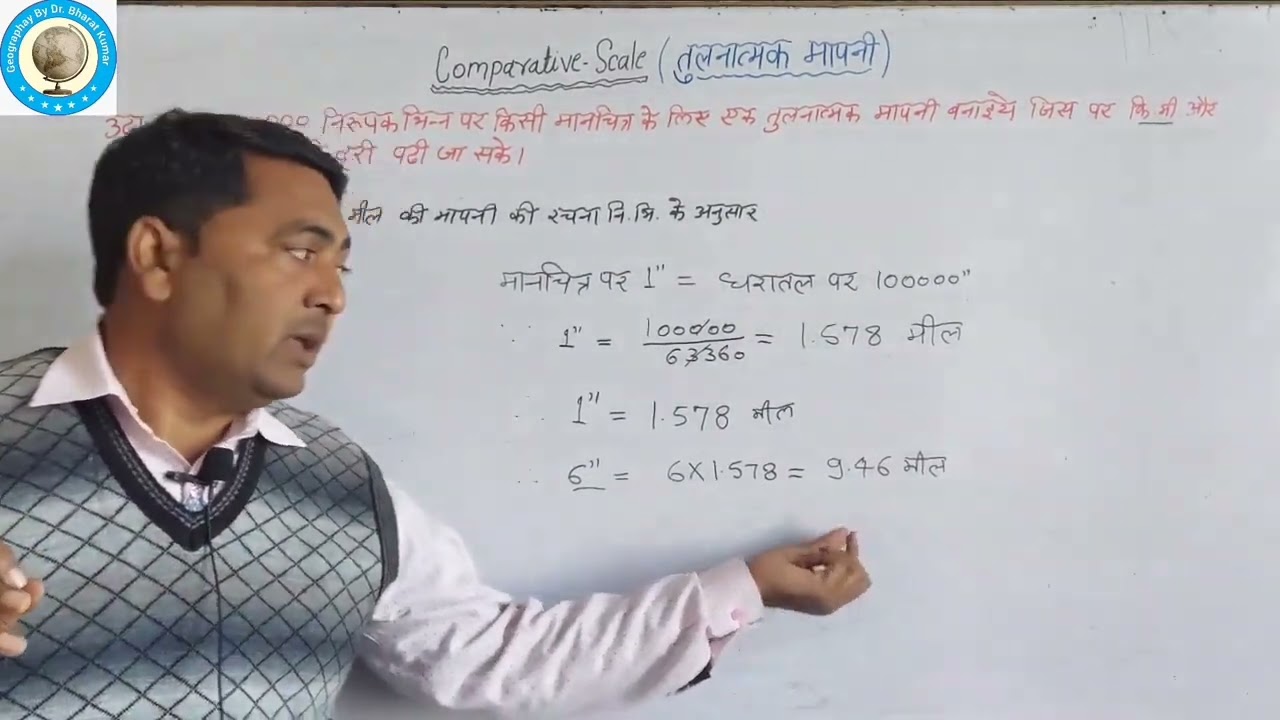 Geographay By Dr. Bharat Kumar
Comparative-Scale (तुलनात्मक मापनी)
निरूपक भिन्न पर किसी मानचित्र के लिए एक तुलनात्मक मापनी बनाइये जिस पर कि मी और
पढी जा सके।
मील की मापनी की रचना नि.भि. के अनुसार
मानचित्र पर 1" = धरातल पर 100000"
∴ 1" = 100000/63360 = 1.578 मील
∴ 1" = 1.578 मील
∴ 6" = 6X1.578 = 9.46 मील